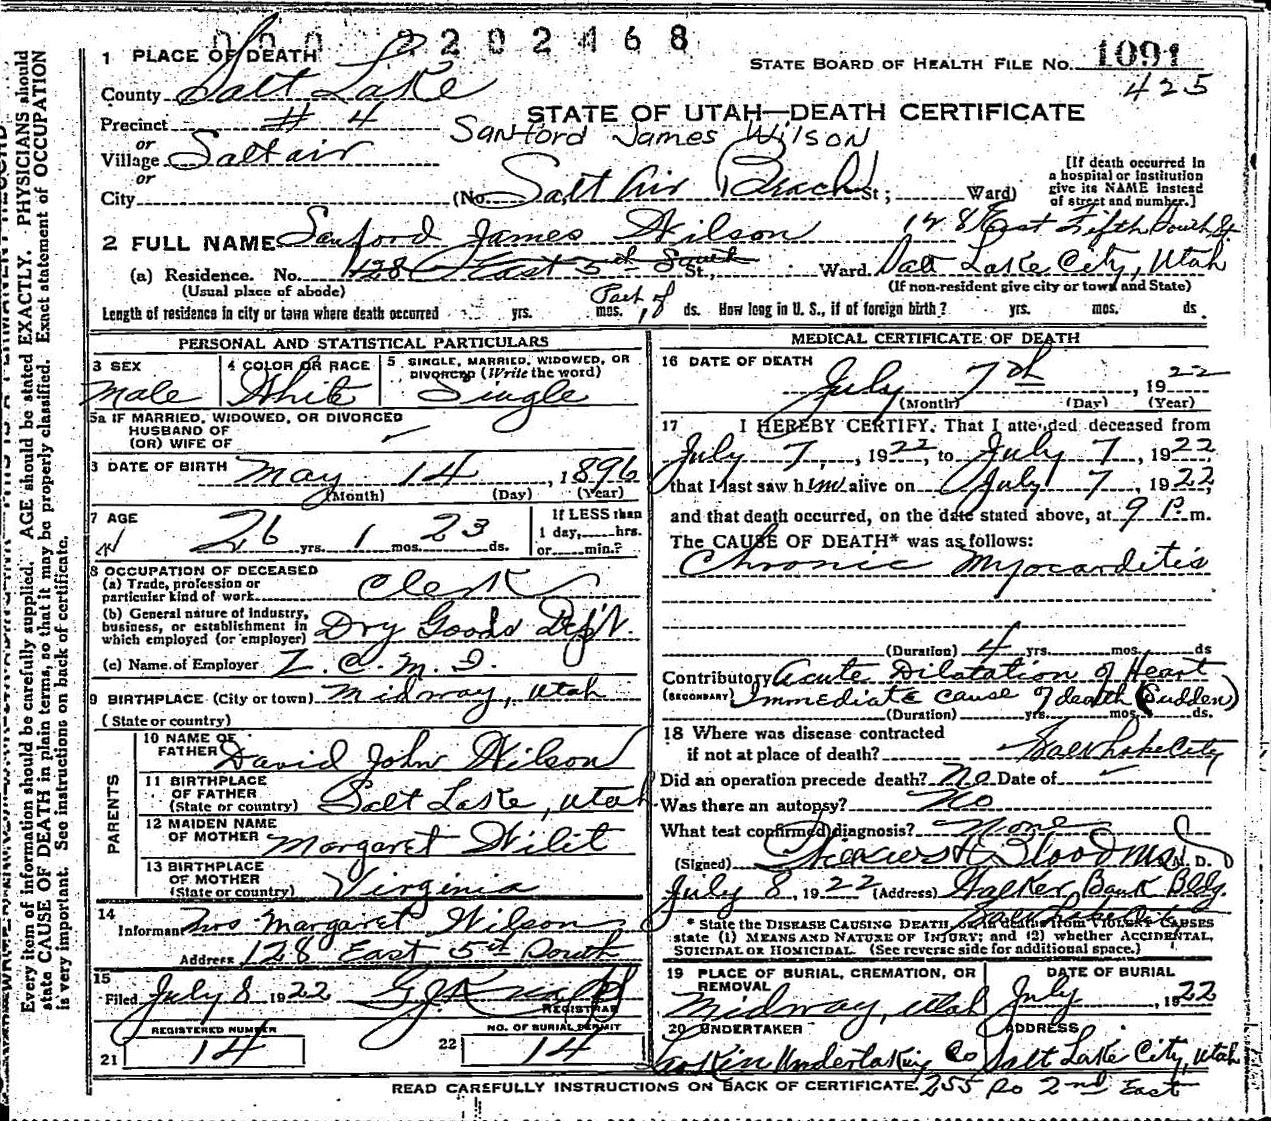 000 2202468
1 PLACE OF DEATH
STATE BOARD OF HEALTH FILE NO. 1091
425
County Salt Lake
STATE OF UTAH—DEATH CERTIFICATE
Precinct # 4
Sanford James Wilson
or
Village Saltair
or
City (No. Salt Air Beach St; Ward)
[If death occurred in
a hospital or institution
give its NAME instead
of street and number.]
2 FULL NAME Sanford James Wilson
128 East Fifth South St
(a) Residence. No. 128 East 5th South St., Ward. Salt Lake City, Utah
(Usual place of abode) (If non-resident give city or town and State)
Length of residence in city or town where death occurred yrs. mos. Part of 1 ds. How long in U. S., if of foreign birth? yrs. mos. ds.
PERSONAL AND STATISTICAL PARTICULARS
3 SEX
Male
4 COLOR OR RACE
White
5 SINGLE, MARRIED, WIDOWED, OR
DIVORCED (Write the word)
Single
5a IF MARRIED, WIDOWED, OR DIVORCED
HUSBAND OF
(OR) WIFE OF
DATE OF BIRTH May 14, 1896
(Month) (Day) (Year)
7 AGE
26 yrs. 1 mos. 23 ds.
If LESS than
1 day, hrs.
or min.?
8 OCCUPATION OF DECEASED
(a) Trade, profession or
particular kind of work Clerk
(b) General nature of industry,
business, or establishment in
which employed (or employer) Dry Goods Dep't.
(c) Name of Employer Z. C. M. I.
9 BIRTHPLACE (City or town) Midway, Utah
(State or country)
PARENTS
10 NAME OF
FATHER David John Wilson
11 BIRTHPLACE
OF FATHER
(State or country) Salt Lake, Utah
12 MAIDEN NAME
OF MOTHER Margaret
13 BIRTHPLACE
OF MOTHER
(State or country) Virginia
14
Informant Mrs Margaret Wilson
Address 128 East 5th South
15
Filed July 8, 1922
REGISTRAR
REGISTERED NUMBER
21 14
NO. OF BURIAL PERMIT
22 14
MEDICAL CERTIFICATE OF DEATH
16 DATE OF DEATH
July 7th, 1922
(Month) (Day) (Year)
17 I HEREBY CERTIFY. That I attended deceased from
July 7, 1922, to July 7, 1922,
that I last saw him alive on July 7, 1922,
and that death occurred, on the date stated above, at 9 P. m.
The CAUSE OF DEATH* was as follows:
Chronic Myocarditis
(Duration) 4 yrs. mos. ds
Contributory Acute Dilatation of Heart
(SECONDARY) Immediate cause of death (Sudden)
(Duration) yrs. mos. ds.
18 Where was disease contracted
if not at place of death? Salt Lake City
Did an operation precede death? No Date of
Was there an autopsy? No
What test confirmed diagnosis? None
(Signed) M. D.
July 8, 1922 (Address) Walker Bank Bldg.
Salt Lake City
* State the DISEASE CAUSING DEATH, or in deaths from VIOLENT CAUSES
state (1) MEANS AND NATURE OF INJURY; and (2) whether ACCIDENTAL,
SUICIDAL OR HOMICIDAL. (See reverse side for additional space.)
19 PLACE OF BURIAL, CREMATION, OR
REMOVAL
Midway, Utah
DATE OF BURIAL
July, 1922
20 UNDERTAKER
Larkin Undertaking Co
ADDRESS
Salt Lake City, Utah
READ CAREFULLY INSTRUCTIONS ON BACK OF CERTIFICATE. 255 So 2nd East
Every item of information should be carefully supplied. AGE should be stated EXACTLY. PHYSICIANS should
state CAUSE OF DEATH in plain terms, so that it may be properly classified. Exact statement of OCCUPATION
is very important. See instructions on back of certificate.